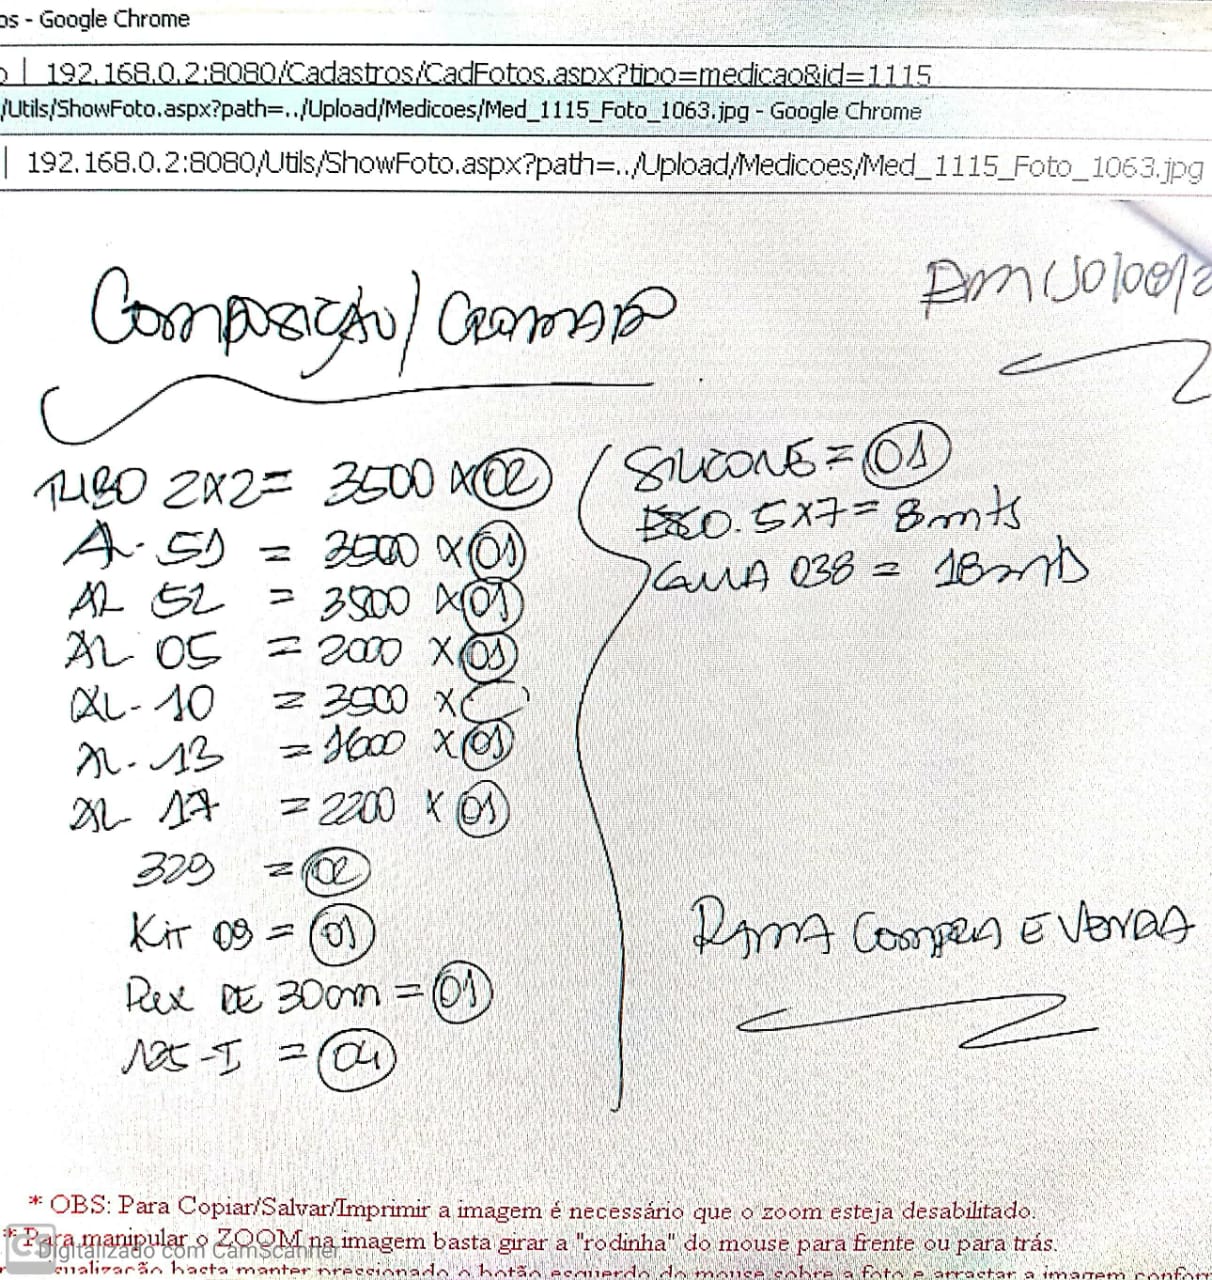 os - Google Chrome
192.168.0.2:8080/Cadastros/CadFotos.aspx?tipo=medicao&id=1115
/Utils/ShowFoto.aspx?path=../Upload/Medicoes/Med_1115_Foto_1063.jpg - Google Chrome
192.168.0.2:8080/Utils/ShowFoto.aspx?path=../Upload/Medicoes/Med_1115_Foto_1063.jpg
COMPOSIÇÃO/
TUBO 2X2 = 3500 X 02
A. 51 = 3500 X 01
AL 52 = 3500 X 01
AL 05 = 2000 X 01
AL-10 = 3500 X
AL-13 = 1600 X 01
AL 17 = 2200 X 01
329 = 02
KIT 09 = 01
DE 30cm = 01
125-I = 04
SILICONE = 01
5X7 = 8mts
038 = 18mts
COMPRA E VENDA
* OBS: Para Copiar/Salvar/Imprimir a imagem é necessário que o zoom esteja desabilitado.
* Para manipular o ZOOM na imagem basta girar a "rodinha" do mouse para frente ou para trás.
CS Digitalizado com CamScanner
basta manter pressionado o botão esquerdo do mouse sobre a foto e arrastar a imagem